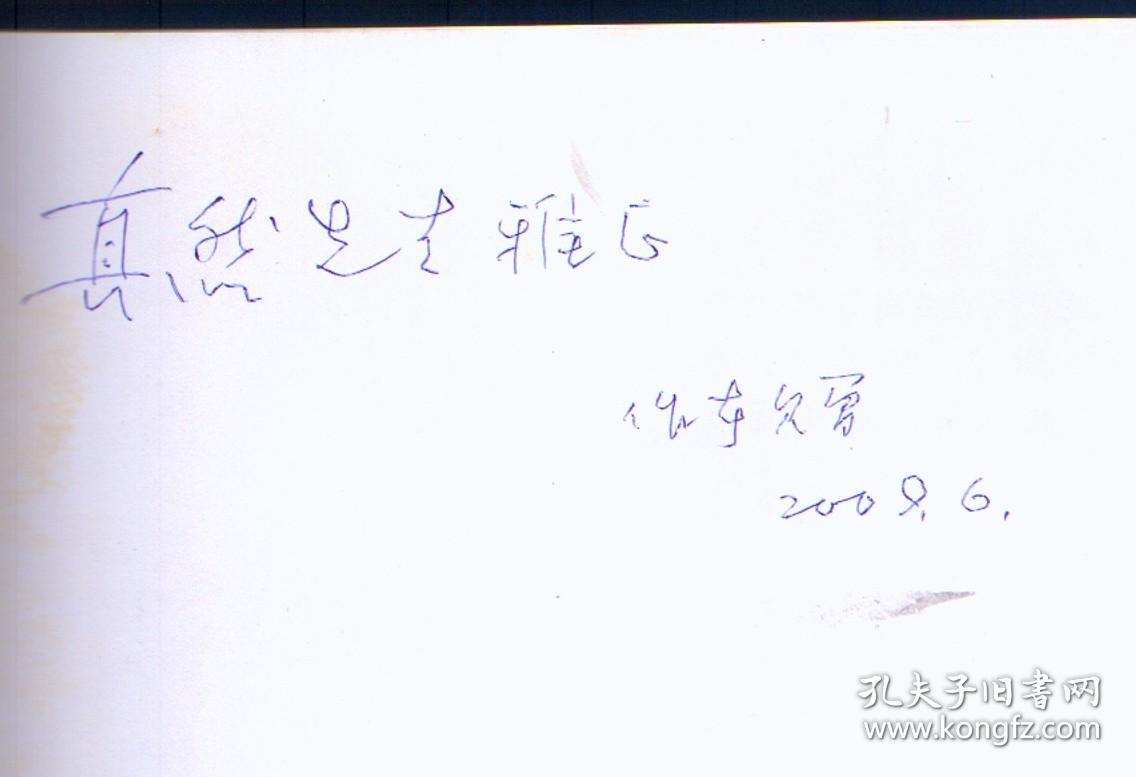 真然先生雅正
2009.6.
孔夫子旧書网
www.kongfz.com